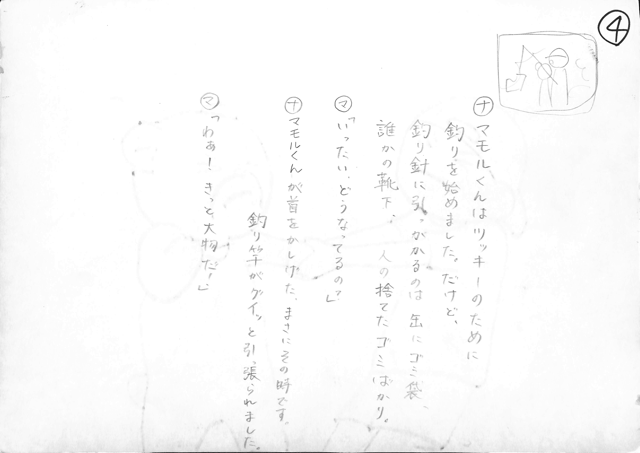 ④
ナ マモルくんはツッキーのために
釣りを始めました。だけど、
釣り針に引っかかるのは 缶にゴミ袋、
誰かの靴下、人の捨てたゴミばかり。
マ「いったい、どうなってるの?」
ナ マモルくんが首をかしげた、まさにその時です。
釣り竿がグイッと引っ張られました。
マ「わぁ!きっと、大物だ!」